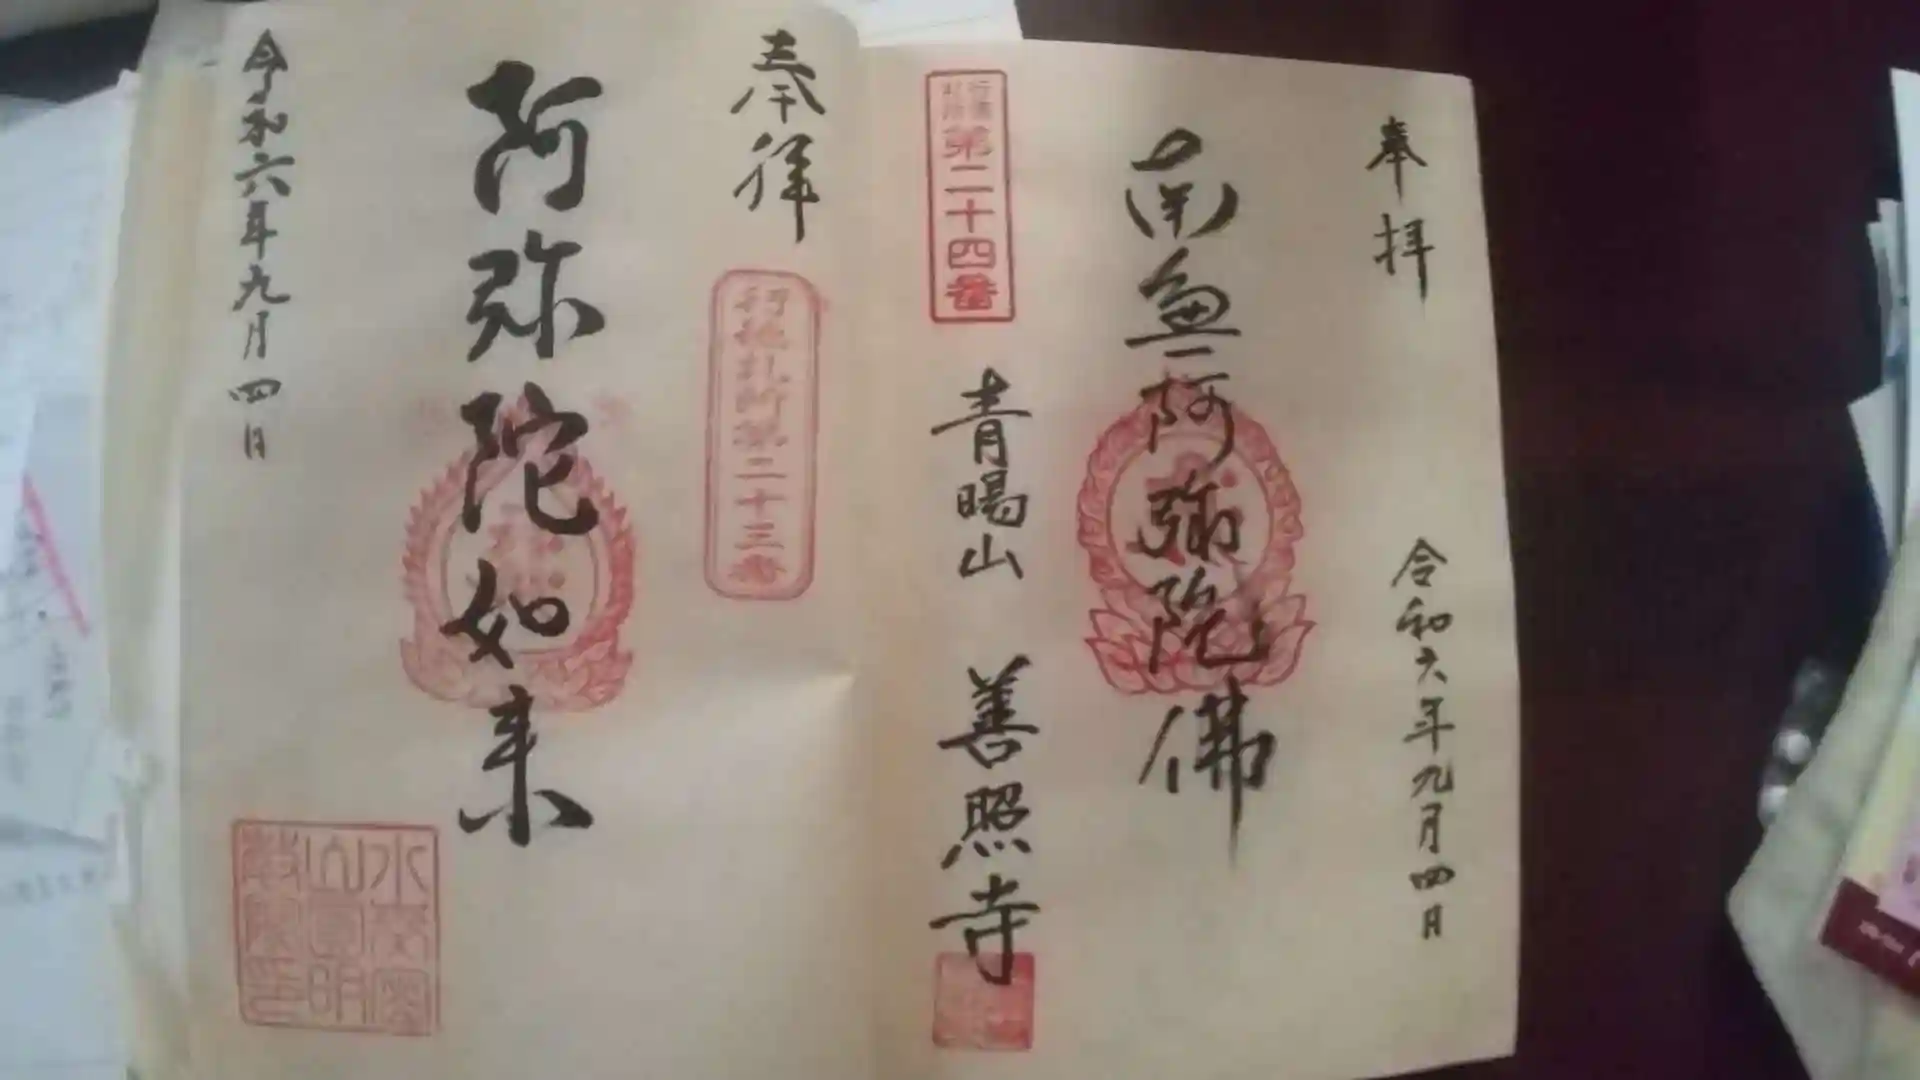 奉拝
令和六年九月四日
南無阿弥陀佛
行徳札所
第二十四番
青暘山 善照寺
奉拝
行徳札所第二十三番
阿弥陀如来
令和六年九月四日